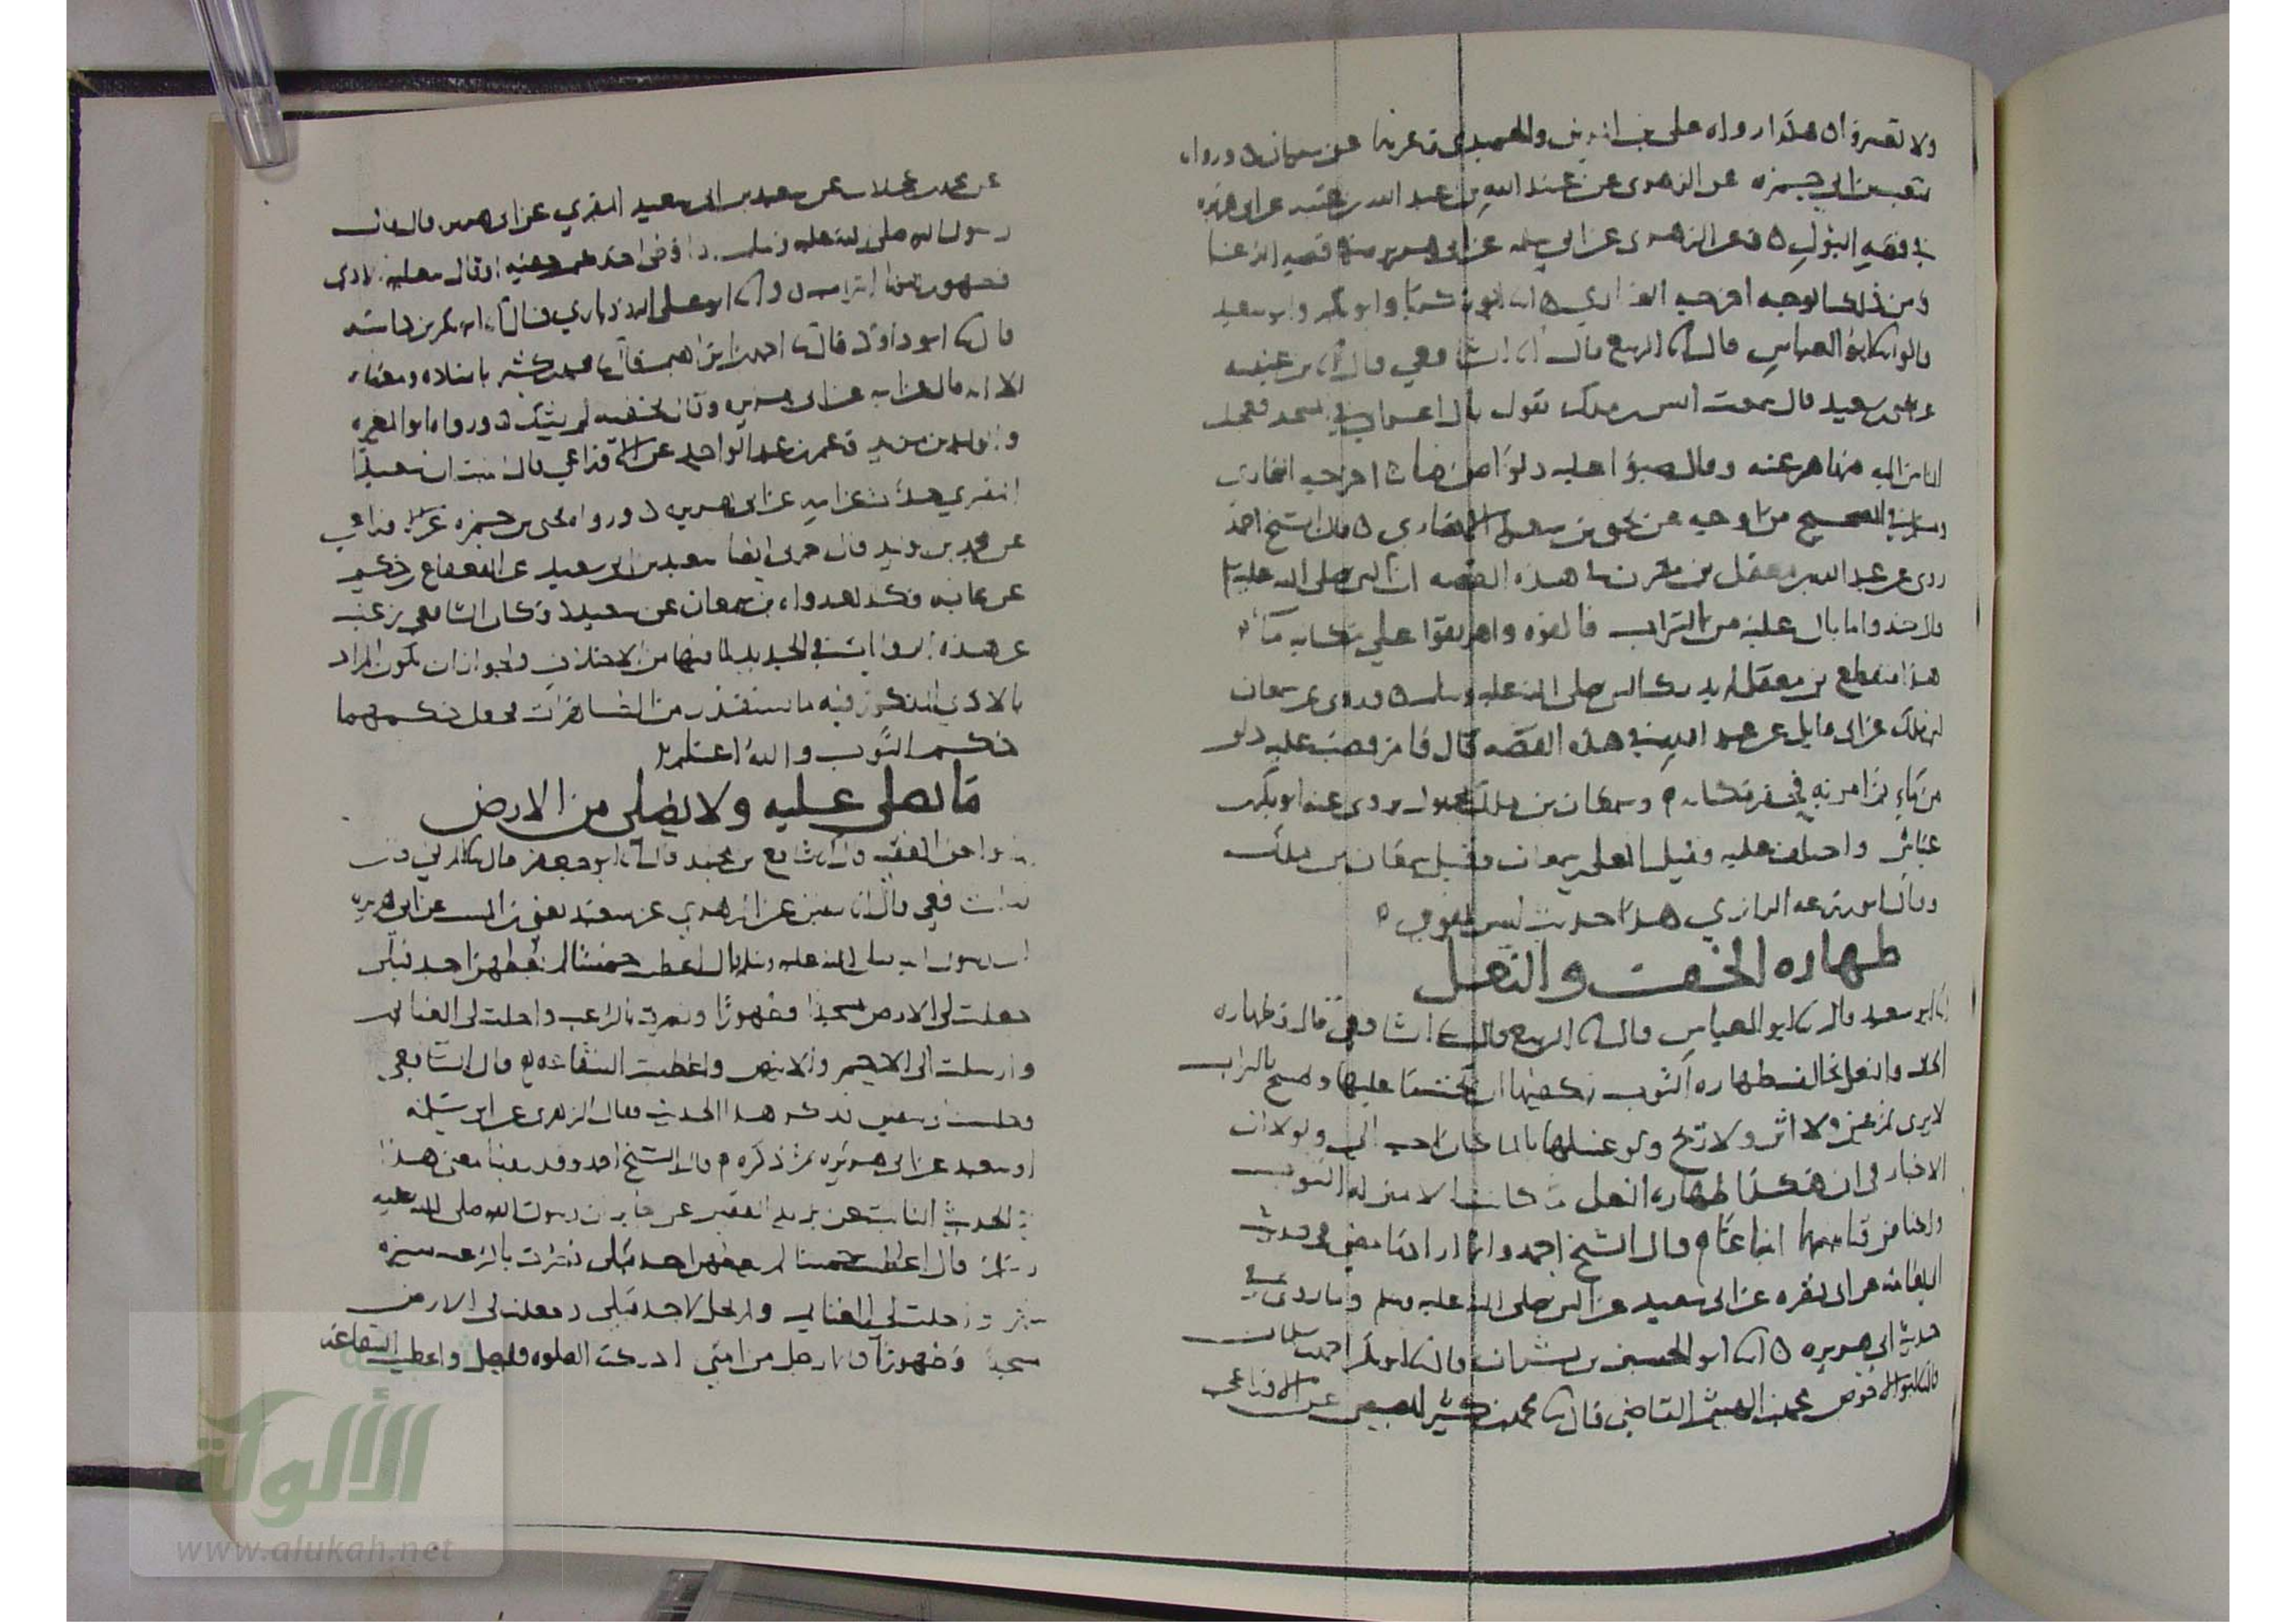 ولا تعسروا ٥ هكذا رواه علي بن المديني والحميدي وغيرهما عن سفيان ٥ ورواه
شعيب بن ابي حمزه عن الزهري عن عبيد الله بن عبد الله بن عتبه عن ابي هريره
في قصه البول ٥ وعن الزهري عن ابي سلمه عن ابي هريره في قصه الدعا
ومن ذلك الوجه اخرجه البخاري ٥ انا ابو زكريا وابو بكر وابو سعيد
قالوا نا ابو العباس قال انا الربيع قال انا الشافعي قال انا بن عيينه
عن يحيى بن سعيد قال سمعت انس بن ملك يقول بال اعرابي في المسجد فعجل
الناس اليه فنهاهم عنه وقال صبوا عليه دلوا من ما ٥ اخرجه البخاري
ومسلم في الصحيح من اوجه عن يحيى بن سعيد الانصاري ٥ قال الشيخ احمد
روى عن عبد الله بن معقل بن مقرن هذه القصه ان النبي صلى الله عليه وسلم
قال خذوا ما بال عليه من التراب فالقوه واهريقوا على مكانه ما
هذا منقطع بن معقل لم يدرك النبي صلى الله عليه وسلم ٥ وروى عن سمعان
بن ملك عن ابي وايل عن عبد الله في هذه القصه قال فامر فصب عليه دلو
من ماء ثم امر به فحفر مكانه ٥ وسمعان بن ملك مجهول روى عنه ابو بكر بن
عياش واختلف عليه وقيل المعلى بن سمعان وقيل سمعان بن ملك
وقال ابو زرعه الرازي هذا حديث ليس بقوي ٥
طهاره الخف والنعل
انا ابو سعيد قال نا ابو العباس قال نا الربيع قال نا الشافعي قال وطهاره
الخف والنعل تخالف طهاره الثوب يكفيها ان عليها ويمسح بالتراب
لا يرى ثم عين ولا اثر ولا ريح ولو غسلها بالما كان احب الي ولولا ان
الاخبار في ان هكذا طهاره النعل ما كانت الا بمنزله الثوب
قال الشيخ احمد وانما اراد ما مضى في حديث
ابي نعامه عن ابي نضره عن ابي سعيد عن النبي صلى الله عليه وسلم وما روي في
حديث ابي هريره ٥ انا ابو الحسين بن بشران قال نا ابو بكر احمد بن سلمان
قال نا ابو الاحوص محمد بن الهيثم القاضي قال نا محمد بن كثير المصيصي عن الاوزاعي
عن محمد بن عجلان عن سعيد بن ابي سعيد المقبري عن ابي هريره قال قال
رسول الله صلى الله عليه وسلم اذا وطى احدكم بخفيه او قال بنعليه الاذى
فطهورهما التراب ٥ وانا ابو علي الروذباري قال نا ابو بكر بن داسه
قال نا ابو داود قال نا احمد بن ابراهيم قال نا محمد بن كثير باسناده ومعناه
الا انه قال عن ابيه عن ابي هريره وقال بخفيه لم يشك ٥ ورواه ابو المغيره
والوليد بن مزيد وعمر بن عبد الواحد عن الاوزاعي قال انبئت ان سعيدا
المقبري حدث عن ابيه عن ابي هريره ٥ ورواه يحيى بن حمزه عن الاوزاعي
عن محمد بن الوليد قال اخبرني ايضا سعيد بن ابي سعيد عن القعقاع بن حكيم
عن عايشه وكذلك رواه بن سمعان عن سعيد ٥ وكان الشافعي يرغب
عن هذه الروايات في الجديد لما فيها من الاختلاف ولجواز ان يكون المراد
بالاذى المذكور فيه ما يستقذر من الطاهرات فجعل حكمهما
حكم الثوب والله اعلم
ما يصلى عليه ولا يصلى من الارض
قال نا شافع بن محمد قال نا ابو جعفر قال نا المزني قال
نا الشافعي قال انا سفين عن الزهري عن سعيد يعني بن المسيب عن ابي هريره
ان رسول الله صلى الله عليه وسلم قال اعطيت خمسا لم يعطهن احد قبلي
جعلت لي الارض مسجدا وطهورا ونصرت بالرعب واحلت لي الغنايم
وارسلت الى الاحمر والابيض واعطيت الشفاعه ٥ قال الشافعي
وجلست الى سفين فذكر هذا الحديث فقال الزهري عن ابي سلمه
او سعيد عن ابي هريره ثم ذكره ٥ قال الشيخ احمد وقد روينا معنى هذا
في الحديث الثابت عن يزيد الفقير عن جابر ان رسول الله صلى الله عليه
وسلم قال اعطيت خمسا لم يعطهن احد قبلي نصرت بالرعب مسيره
شهر واحلت لي الغنايم ولم تحل لاحد قبلي وجعلت لي الارض
مسجدا وطهورا فايما رجل من امتي ادركته الصلوه فليصل واعطيت الشفاعه
الألوكة
www.alukah.net